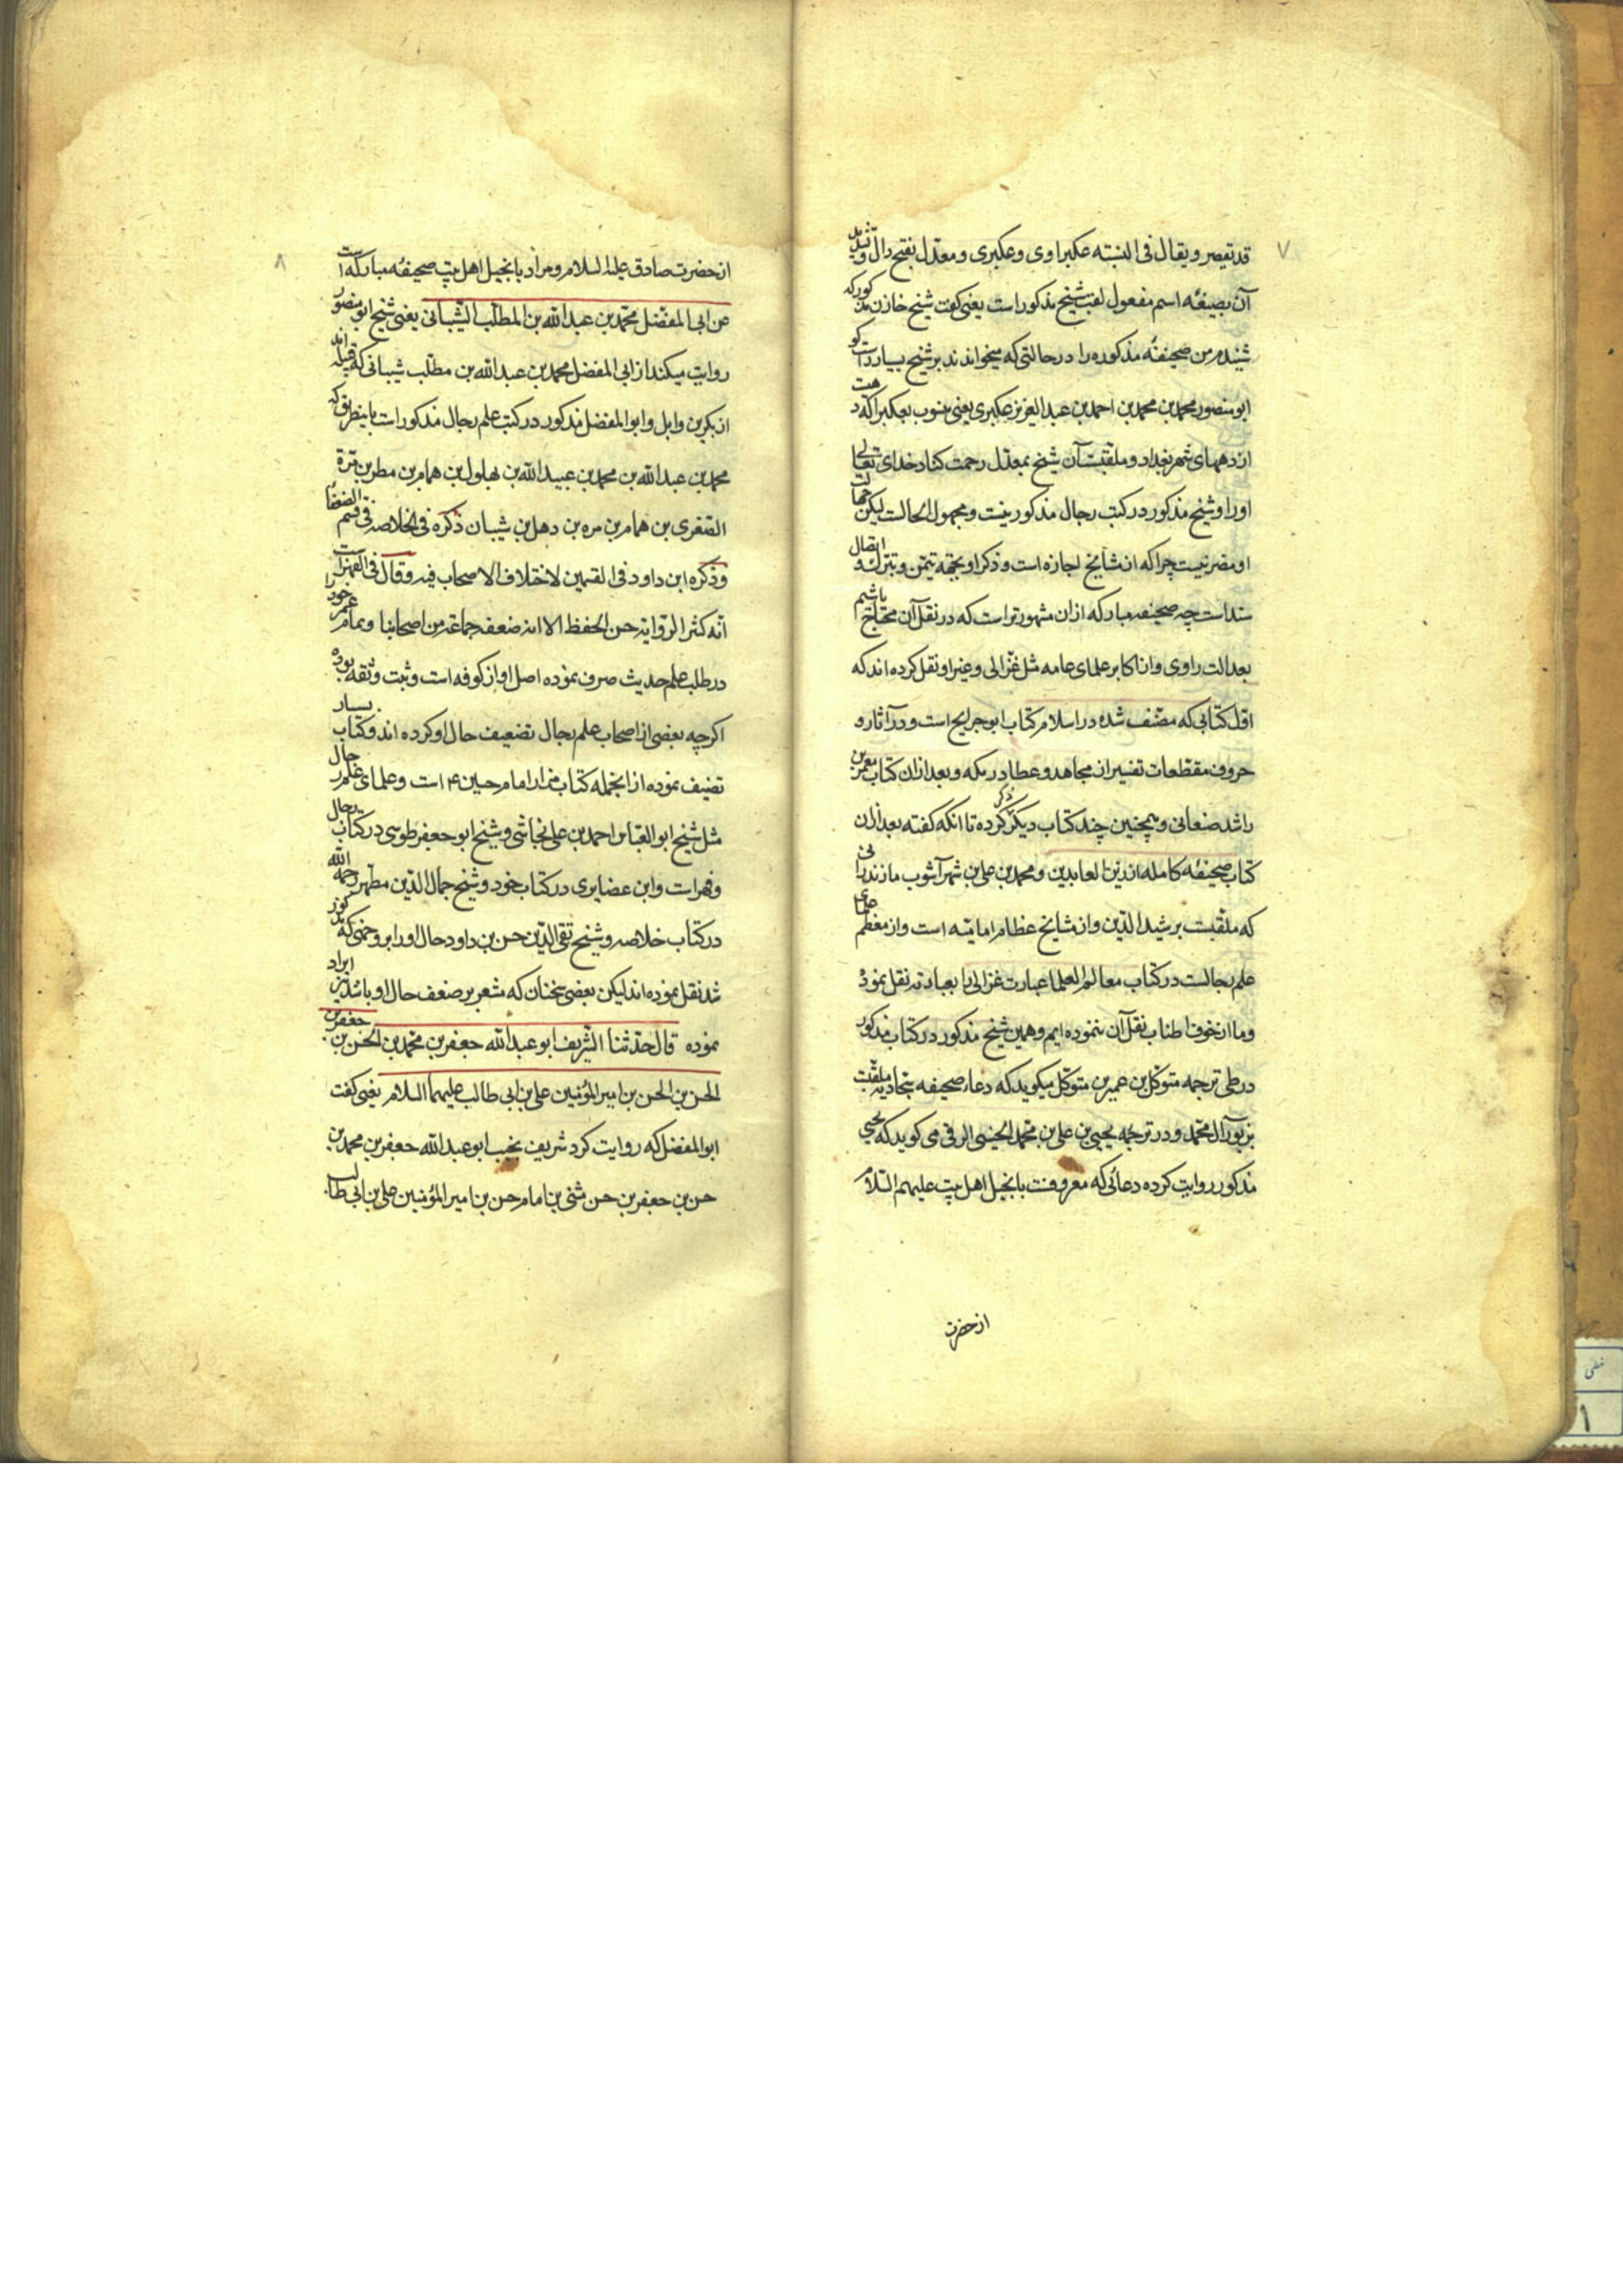 ۷
قد تقصر و یقال فی النسبته عکبراوی و عکبری و معدل بفتح دال و تشدید
آن بصیغه اسم مفعول لقب شیخ مذکور است یعنی گفت شیخ خازن مذکور که
شنیدم من صحیفهٔ مذکوره را در حالتی که میخواندند بر شیخ بسیار راست کو
ابو منصور محمد بن محمد بن احمد بن عبد العزیز عکبری یعنی منسوب بعکبرا که دهیست
از دههای شهر بغداد و ملقبست آن شیخ بمعدل رحمت کناد خدای تعالی
او را و شیخ مذکور در کتب رجال مذکور نیست و مجهول الحالست لیکن جهالت
او مضر نیست چرا که از مشایخ اجازه است و ذکر او بجهة تیمن و تبرک و اتصال
سند است چه صحیفه مبارکه ازان مشهورتر است که در نقل آن محتاج باشیم
بعدالت راوی و از اکابر علمای عامه مثل غزالی و غیر او نقل کرده اند که
اول کتابی که مصنف شده در اسلام کتاب ابو جریح است در آثار و
حروف مقطعات تفسیر از مجاهد و عطا در مکه و بعد ازان کتاب معمر بن
راشد صنعانی و همچنین چند کتاب دیگر ذکر کرده تا انکه گفته بعد ازان
کتاب صحیفهٔ کامله از زین العابدین و محمد بن علی بن شهر آشوب مازندرانی
که ملقبست برشید الدین و از مشایخ عظام امامیته است و از معظم علمای
علم رجالست در کتاب معالم العلما عبارت غزالی را بعبارته نقل نموده
و ما از خوف اطناب نقل آن ننموده ایم و همین شیخ مذکور در کتاب مذکور
در طی ترجمه متوکل بن عمیر بن متوکل میگوید که دعاء صحیفه سجادیه ملقبت
بزبور آل محمد و در ترجمه یحیی بن علی بن محمد الحسینی الرقی می گوید که یحیی
مذکور روایت کرده دعائی که معروفست بانجیل اهل بیت علیهم السلام
از حضرت
۸
از حضرت صادق علیه السلام و مراد بانجیل اهل بیت صحیفهٔ مبارکه است
عن ابی المفضل محمد بن عبد الله بن المطلب الشیبانی یعنی شیخ ابو منصور
روایت میکند از ابی المفضل محمد بن عبد الله بن مطلب شیبانی که قبیله اند
از بکر بن وایل و ابو المفضل مذکور در کتب علم رجال مذکور است باینطریق که
محمد بن عبد الله بن محمد بن عبید الله بن بهلول بن همام بن مطر بن مرة
الصغری بن همام بن مره بن دهل بن شیبان ذکره فی الخلاصه فی قسم الضعفا
و ذکره ابن داود فی القسمین لاختلاف الاصحاب فیه و قال فی الفهرست
انه کثیر الروایة حسن الحفظ الا انه ضعفه جماعة من اصحابنا و تمام عمر خود را
در طلب علم حدیث صرف نموده اصل او از کوفه است و ثبت و ثقه بوده
اگرچه بعضی از اصحاب علم رجال تضعیف حال او کرده اند و کتاب بسیار
تصنیف نموده از انجمله کتاب مزار امام حسین ع است و علمای علم رجال
مثل شیخ ابو العباس احمد بن علی نجاشی و شیخ ابو جعفر طوسی در کتاب رجال
و فهرست و ابن غضایری در کتاب خود و شیخ جمال الدین مطهر رحمه الله
در کتاب خلاصه و شیخ تقی الدین حسن بن داود حال او را بر وجهی که مذکور
شد نقل نموده اند لیکن بعضی سخنان که مشعر بر ضعف حال او باشد نیز ایراد
نموده قال حدثنا الشریف ابو عبد الله جعفر بن محمد بن الحسن بن جعفر بن
الحسن بن الحسن بن امیر المؤمنین علی بن ابی طالب علیهما السلام یعنی گفت
ابو المفضل که روایت کرد شریف نجیب ابو عبد الله جعفر بن محمد بن
حسن بن جعفر بن حسن مثنی بن امام حسن بن امیر المؤمنین علی بن ابی طالب
خطی
۱